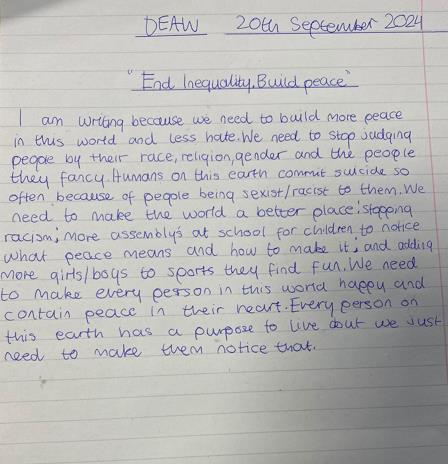 DEAW 20th September 2024
"End Inequality.Build peace"
I am writing because we need to build more peace
in this world and less hate.We need to stop judging
people by their race,religion,gender and the people
they fancy.Humans on this earth commit suicide so
often because of people being sexist/racist to them.We
need to make the world a better place:stopping
racism; more assembly's at school for children to notice
what peace means and how to make it; and adding
more girls/boys to sports they find fun.We need
to make every person in this world happy and
contain peace in their heart.Every person on
this earth has a purpose to live but we just
need to make them notice that.